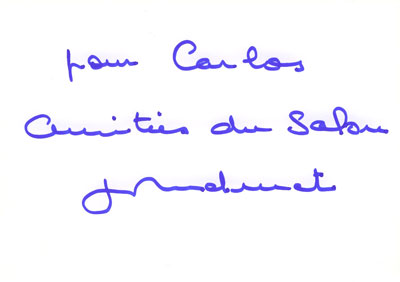 pour Carlos
Amitiés du Salon